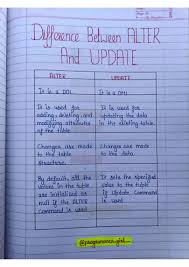 Difference Between ALTER
And UPDATE
ALTER
UPDATE
It is a DDL
It is a DML
It is used for
adding, deleting, and
modifying attributes
of the table
It is used for
updating the data
in the existing table.
Changes are made
to the table
Structure.
Changes are made
to the data.
By default, all the
values in the table
are initialized as
null if the ALTER
Command is used
It sets the specified
value to the table
if Update Command
is used
@programmer_girl_